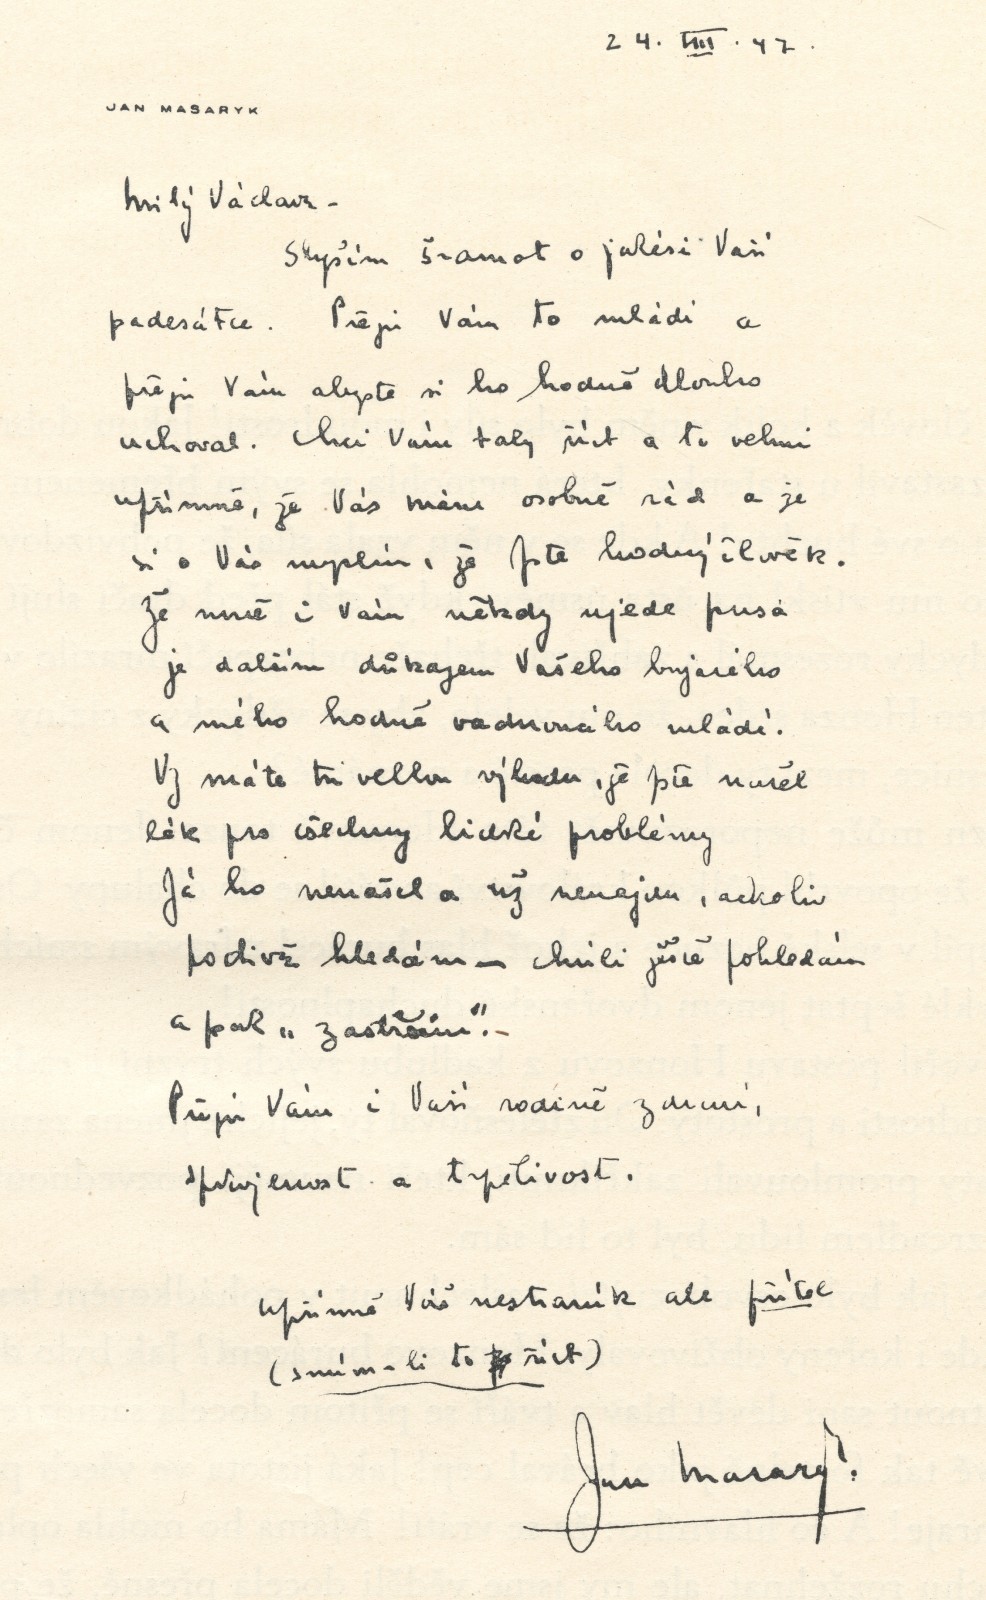 24. VIII. 47.
JAN MASARYK
Milý Václave -
Slyším šramot o jakési Vaší
padesátce. Přeji Vám to mládí a
přeji Vám abyste si ho hodně dlouho
uchoval. Chci Vám taky říct a to velmi
upřímně, že Vás mám osobně rád a že
si o Vás myslím, že jste hodný člověk.
Že mně i Vám někdy ujede pusa
je dalším důkazem Vašeho bujarého
a mého hodně vadnoucího mládí.
Vy máte tu velkou výhodu, že jste našel
lék pro všechny lidské problémy
Já ho nenašel a už nenajdu, ačkoliv
poctivě hledám - chvíli ještě pohledám
a pak „zastřčím". -
Přeji Vám i Vaší rodině zdraví,
spokojenost a trpělivost.
upřímně Váš nestraník ale přítel
(smím-li to říct)
Jan Masaryk.